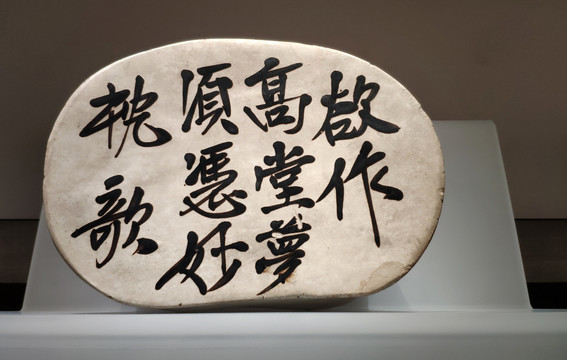 啟作
高堂夢
須憑妙
枕歌